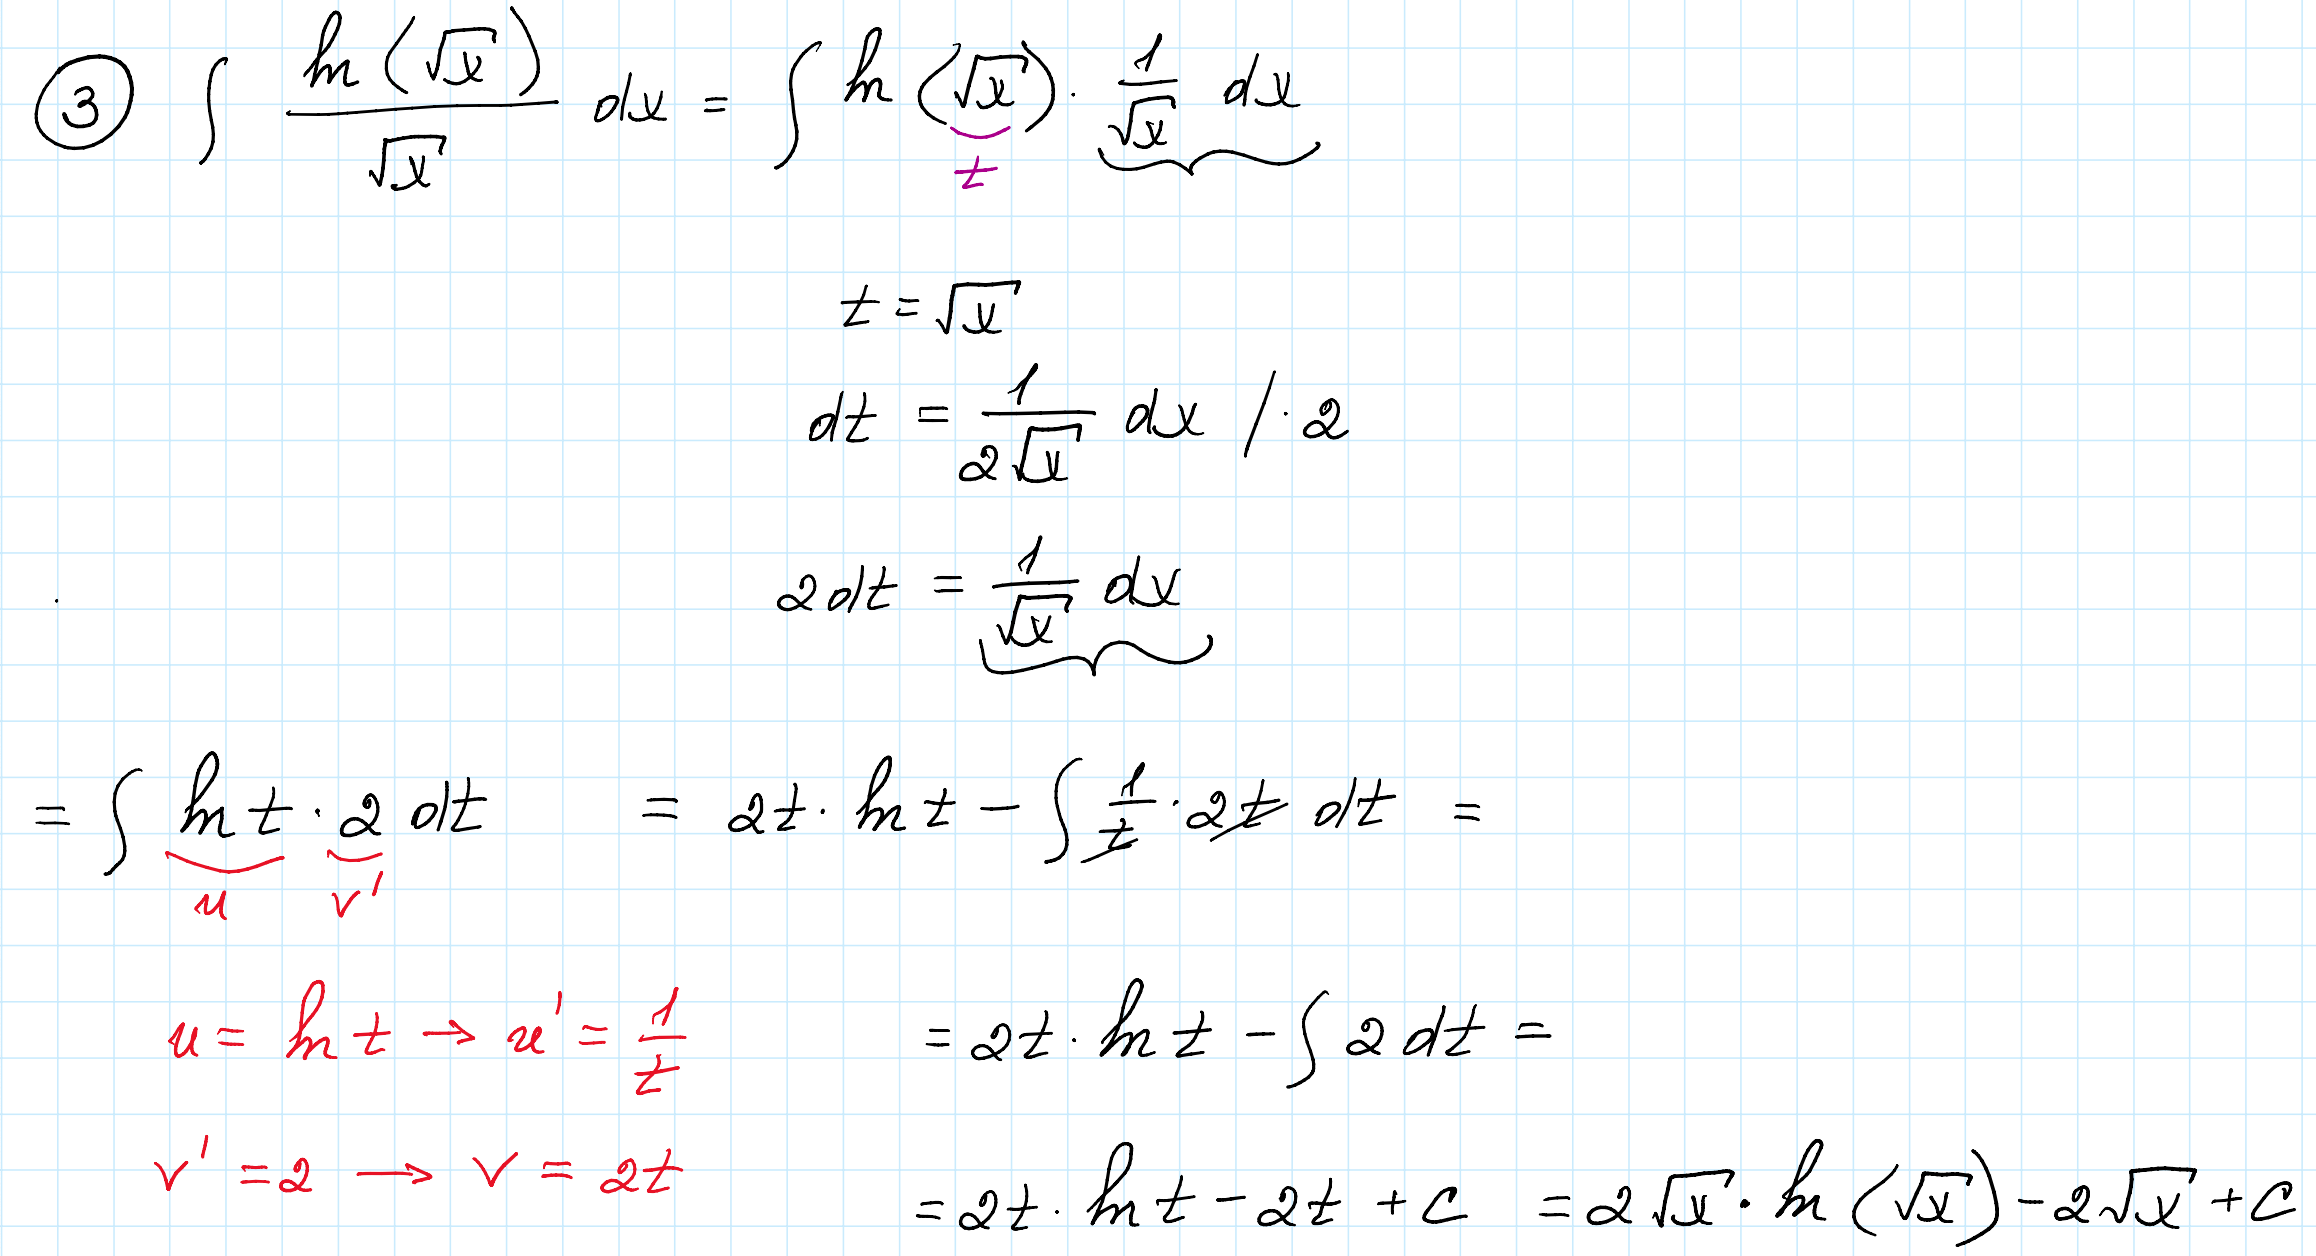 ③ ∫ ln(√x)/√x dx = ∫ ln(√x) · 1/√x dx
t
t = √x
dt = 1/(2√x) dx / · 2
2dt = 1/√x dx
= ∫ ln t · 2 dt = 2t · ln t − ∫ 1/t · 2t dt =
u v'
u = ln t → u' = 1/t
v' = 2 → v = 2t
= 2t · ln t − ∫ 2 dt =
= 2t · ln t − 2t + C = 2√x · ln(√x) − 2√x + C